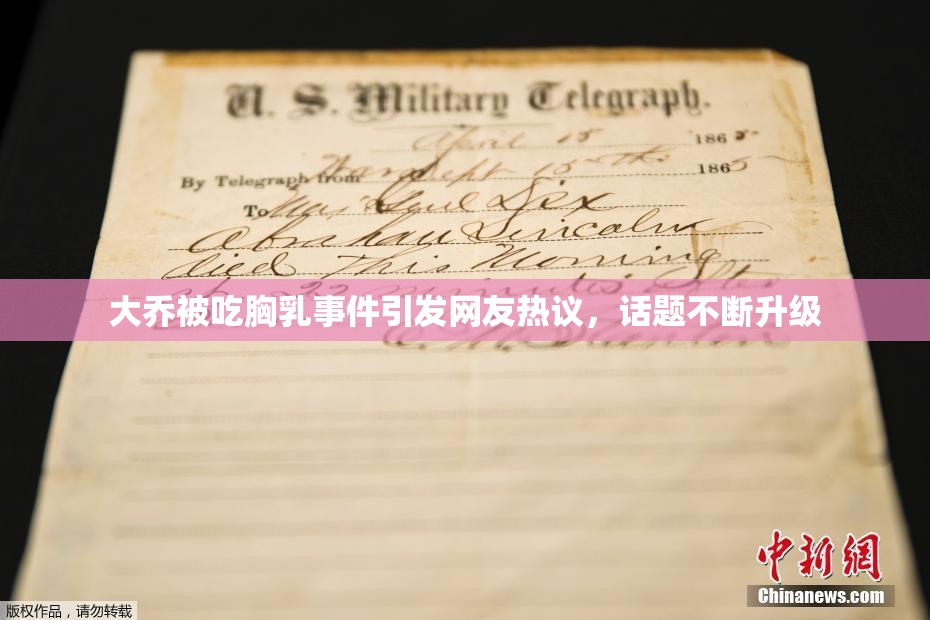 U. S. Military Telegraph.
April 15 1865
By Telegraph from War Dept 15th 1865
To Maj Genl Dix
Abraham Lincoln
died This Morning
at 22 minutes after
大乔被吃胸乳事件引发网友热议，话题不断升级
E. M. Stanton
中新网
Chinanews.com
版权作品，请勿转载